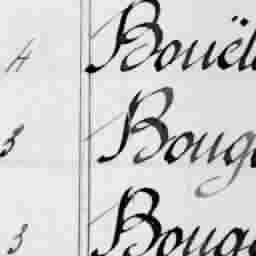 4 Bouël
3 Boug
3 Boug